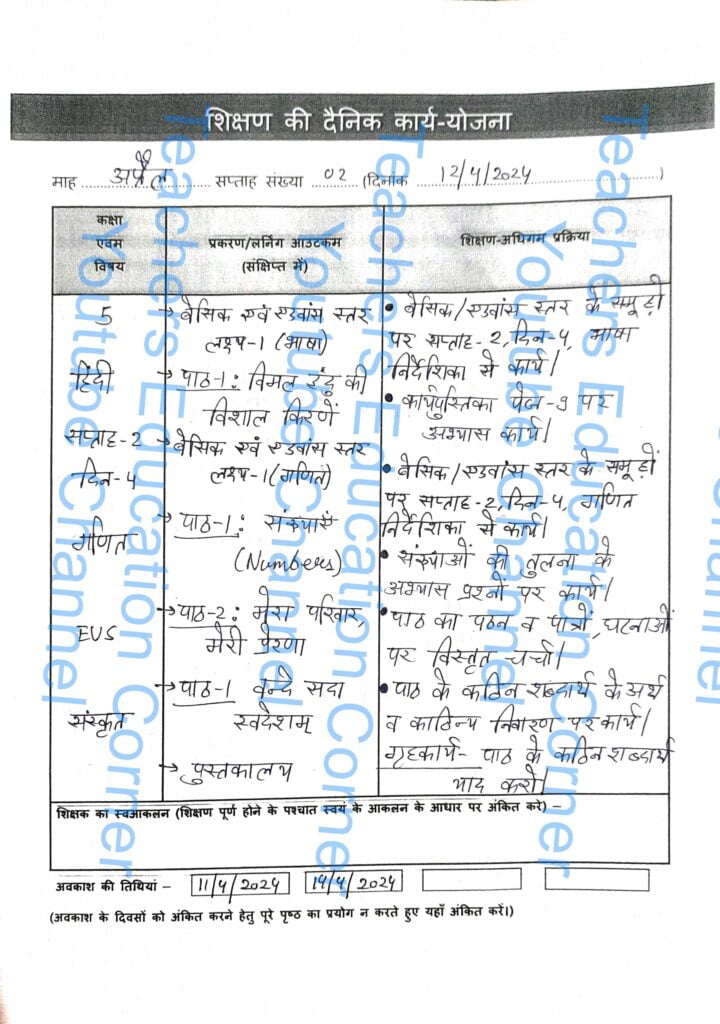 शिक्षण की दैनिक कार्य-योजना
माह अप्रैल सप्ताह संख्या 02 (दिनांक 12/4/2024)
कक्षा
एवम
विषय
प्रकरण/लर्निंग आउटकम
(संक्षिप्त में)
शिक्षण-अधिगम प्रक्रिया
5
हिंदी
सप्ताह-2
दिन-4
गणित
EVS
संस्कृत
→ बेसिक एवं एडवांस स्तर
लक्ष्य-1 (भाषा)
→ पाठ-1: विमल इंदु की
विशाल किरणें
→ बेसिक एवं एडवांस स्तर
लक्ष्य-1 (गणित)
→ पाठ-1: संख्याएँ
(Numbers)
→ पाठ-2: मेरा परिवार,
मेरी प्रेरणा
→ पाठ-1 वन्दे सदा
स्वदेशम्
→ पुस्तकालय
• बेसिक/एडवांस स्तर के समूहों
पर सप्ताह-2, दिन-4, भाषा
निर्देशिका से कार्य।
• कार्यपुस्तिका पेज-9 पर
अभ्यास कार्य।
• बेसिक/एडवांस स्तर के समूहों
पर सप्ताह-2, दिन-4, गणित
निर्देशिका से कार्य।
• संख्याओं की तुलना के
अभ्यास प्रश्नों पर कार्य।
• पाठ का पठन व पात्रों, घटनाओं
पर विस्तृत चर्चा।
• पाठ के कठिन शब्दार्थ के अर्थ
व काठिन्य निवारण पर कार्य।
गृहकार्य- पाठ के कठिन शब्दार्थ
याद करो।
शिक्षक का स्वआकलन (शिक्षण पूर्ण होने के पश्चात स्वयं के आकलन के आधार पर अंकित करे) –
अवकाश की तिथियां – 11/4/2024 14/4/2024
(अवकाश के दिवसों को अंकित करने हेतु पूरे पृष्ठ का प्रयोग न करते हुए यहाँ अंकित करें।)
Teachers Education Corner
Youtube Channel
Teachers Education Corner
Youtube Channel
Teachers Education Corner
Youtube Channel